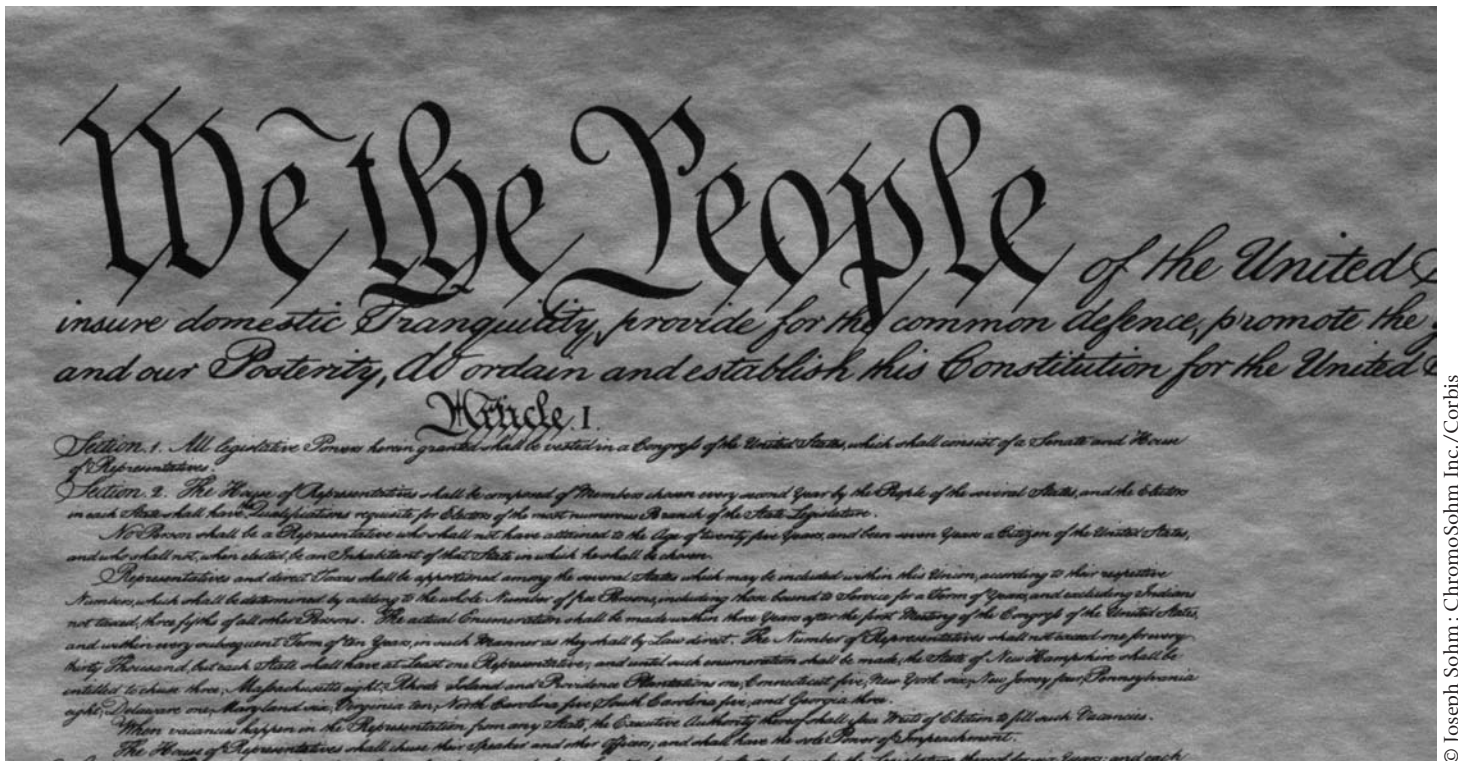 We the People of the United
insure domestic Tranquility, provide for the common defence, promote the
and our Posterity, do ordain and establish this Constitution for the United
Article. I.
Section. 1. All legislative Powers herein granted shall be vested in a Congress of the United States, which shall consist of a Senate and House
of Representatives.
Section. 2. The House of Representatives shall be composed of Members chosen every second Year by the People of the several States, and the Electors
in each State shall have the Qualifications requisite for Electors of the most numerous Branch of the State Legislature.
No Person shall be a Representative who shall not have attained to the Age of twenty five Years, and been seven Years a Citizen of the United States,
and who shall not, when elected, be an Inhabitant of that State in which he shall be chosen.
Representatives and direct Taxes shall be apportioned among the several States which may be included within this Union, according to their respective
Numbers, which shall be determined by adding to the whole Number of free Persons, including those bound to Service for a Term of Years, and excluding Indians
not taxed, three fifths of all other Persons. The actual Enumeration shall be made within three Years after the first Meeting of the Congress of the United States,
and within every subsequent Term of ten Years, in such Manner as they shall by Law direct. The Number of Representatives shall not exceed one for every
thirty Thousand, but each State shall have at Least one Representative; and until such enumeration shall be made, the State of New Hampshire shall be
entitled to chuse three, Massachusetts eight, Rhode Island and Providence Plantations one, Connecticut five, New York six, New Jersey four, Pennsylvania
eight, Delaware one, Maryland six, Virginia ten, North Carolina five, South Carolina five, and Georgia three.
When vacancies happen in the Representation from any State, the Executive Authority thereof shall issue Writs of Election to fill such Vacancies.
The House of Representatives shall chuse their Speaker and other Officers; and shall have the sole Power of Impeachment.
© Joseph Sohm; ChromoSohm Inc./Corbis